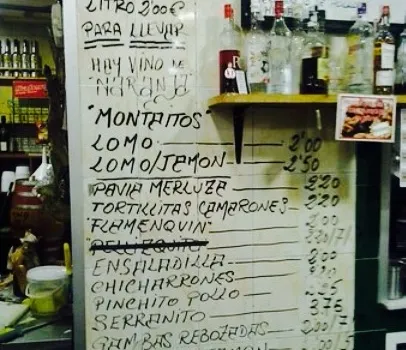 LITRO 2'00€
PARA LLEVAR
HAY VINO DE
NARANJA
"MONTAITOS"
LOMO 2'00
LOMO/JAMON 2'50
PAVIA MERLUZA 2'20
TORTILLITAS CAMARONES 2'20
FLAMENQUIN 2'00
ENSALADILLA 2'00
CHICHARRONES
PINCHITO POLLO
SERRANITO 3'75
GAMBAS REBOZADAS